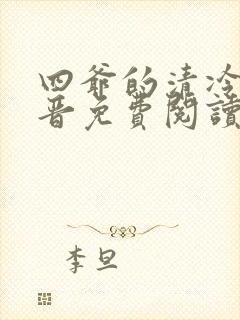 四爷的清冷
晋免費閱讀
李旦